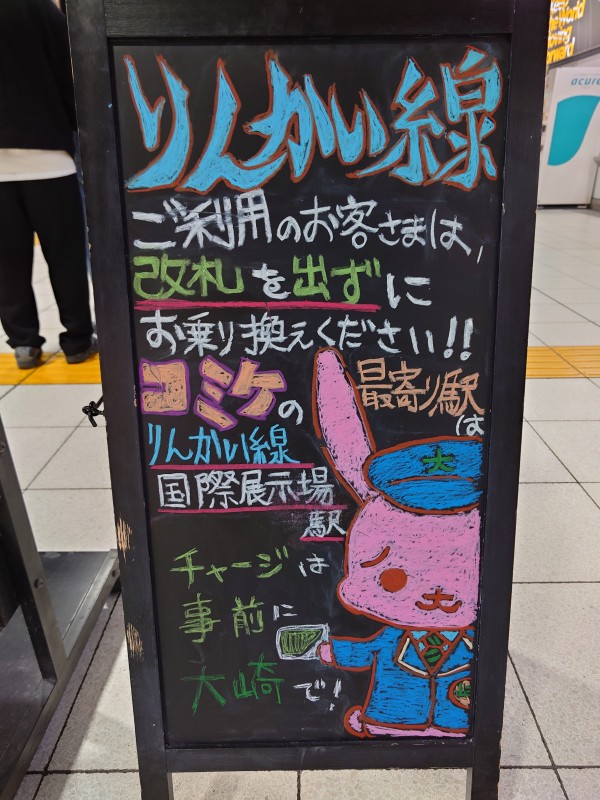 りんかい線
ご利用のお客さまは,
改札を出ずに
お乗り換えください!!
コミケの
最寄り駅
は
りんかい線
国際展示場
駅
大
チャージは
事前に
大崎で!
acure
World
Moving
Forward